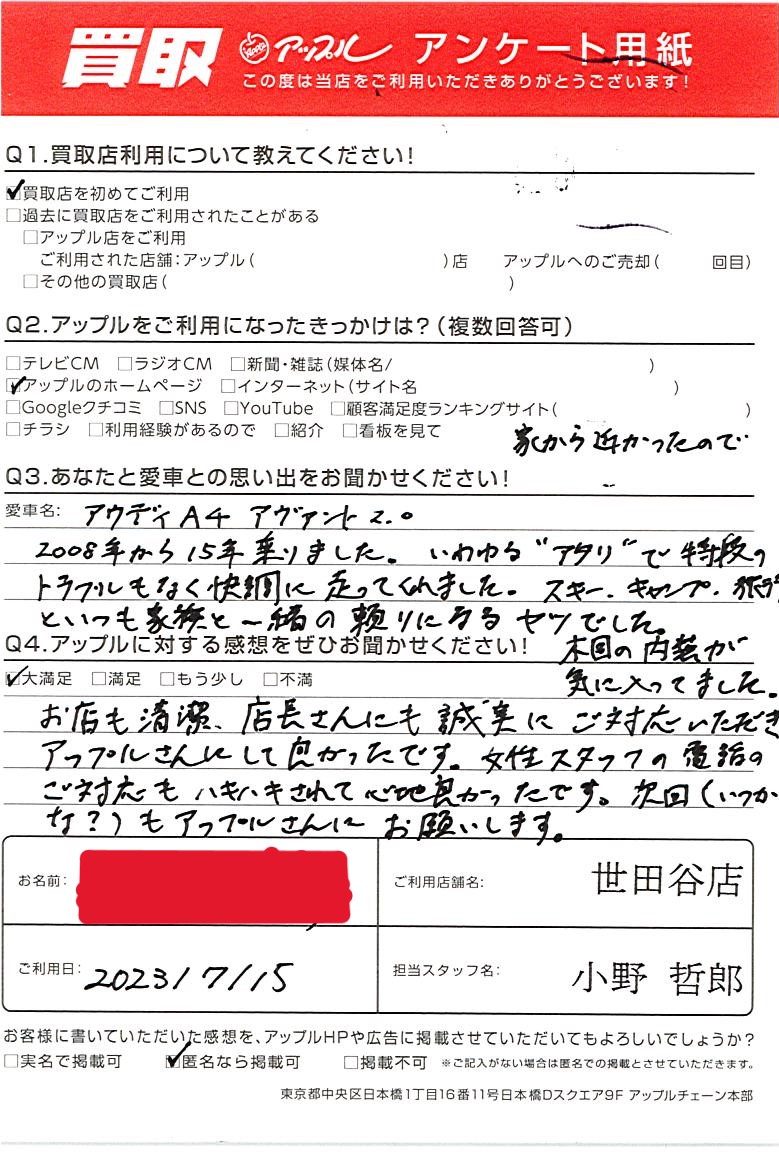 買取 Apple アップル アンケート用紙
この度は当店をご利用いただきありがとうございます!
Q1.買取店利用について教えてください!
☑買取店を初めてご利用
□過去に買取店をご利用されたことがある
□アップル店をご利用
ご利用された店舗:アップル( )店 アップルへのご売却( 回目)
□その他の買取店( )
Q2.アップルをご利用になったきっかけは?(複数回答可)
□テレビCM □ラジオCM □新聞・雑誌(媒体名/ )
☑アップルのホームページ □インターネット(サイト名 )
□Googleクチコミ □SNS □YouTube □顧客満足度ランキングサイト( )
□チラシ □利用経験があるので □紹介 □看板を見て
家から近かったので
Q3.あなたと愛車との思い出をお聞かせください!
愛車名: アウディA4 アヴァント2.0
2008年から15年乗りました。いわゆる"アタリ"で特段の
トラブルもなく快調に走ってくれました。スキー、キャンプ、旅行
といつも家族と一緒の頼りになるヤツでした。
Q4.アップルに対する感想をぜひお聞かせください!
木目の内装が
☑大満足 □満足 □もう少し □不満
気に入ってました。
お店も清潔、店長さんにも誠実にご対応いただき
アップルさんにして良かったです。女性スタッフの電話の
ご対応もハキハキされて心地良かったです。次回(いつか
な?)もアップルさんにお願いします。
お名前:
ご利用店舗名: 世田谷店
ご利用日: 2023/7/15
担当スタッフ名: 小野 哲郎
お客様に書いていただいた感想を、アップルHPや広告に掲載させていただいてもよろしいでしょうか?
□実名で掲載可 ☑匿名なら掲載可 □掲載不可 ※ご記入がない場合は匿名での掲載とさせていただきます。
東京都中央区日本橋1丁目16番11号日本橋Dスクエア9F アップルチェーン本部